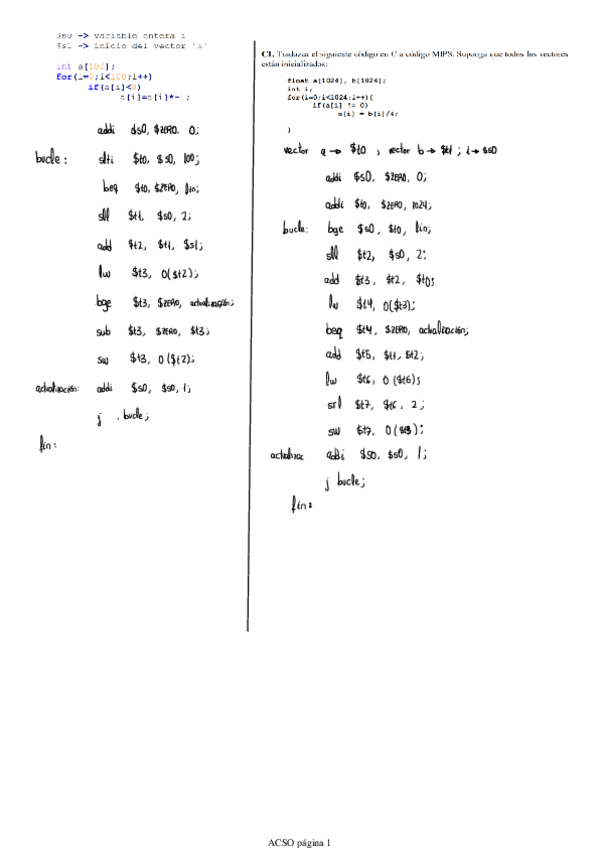 $s0 -> variable entera i
$s1 -> inicio del vector 'a'
int a[100];
for(i=0;i<100;i++)
if(a[i]<0)
a[i]=a[i]*- ;
addi $s0, $ZERO, 0;
bucle: slti $t0, $s0, 100;
beq $t0, $ZERO, fin;
sll $t1, $s0, 2;
add $t2, $t1, $s1;
lw $t3, 0($t2);
bge $t3, $ZERO, actualización;
sub $t3, $ZERO, $t3;
sw $t3, 0($t2);
actualización: addi $s0, $s0, 1;
j bucle;
fin:
C1. Traduzca el siguiente código en C a código MIPS. Suponga que todos los vectores
están inicializados:
float a[1024], b[1024];
int i;
for(i=0;i<1024;i++){
if(a[i] != 0)
a[i] = b[i]/4;
}
vector a → $t0 , vector b → $t1 ; i → $s0
addi $s0, $ZERO, 0;
addi $t0, $ZERO, 1024;
bucle: bge $s0, $t0, fin;
sll $t2, $s0, 2;
add $t3, $t2, $t0;
lw $t4, 0($t3);
beq $t4, $ZERO, actualización;
add $t5, $t1, $t2;
lw $t6, 0($t6);
srl $t7, $t6, 2;
sw $t7, 0($t3);
addi $s0, $s0, 1;
j bucle;
fin:
ACSO página 1